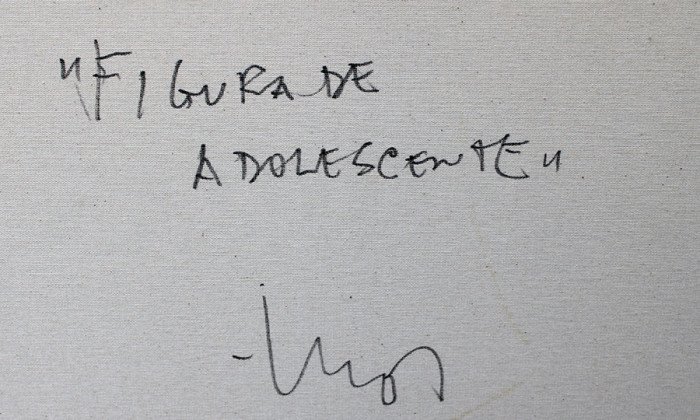 "FIGURA DE
ADOLESCENTE"